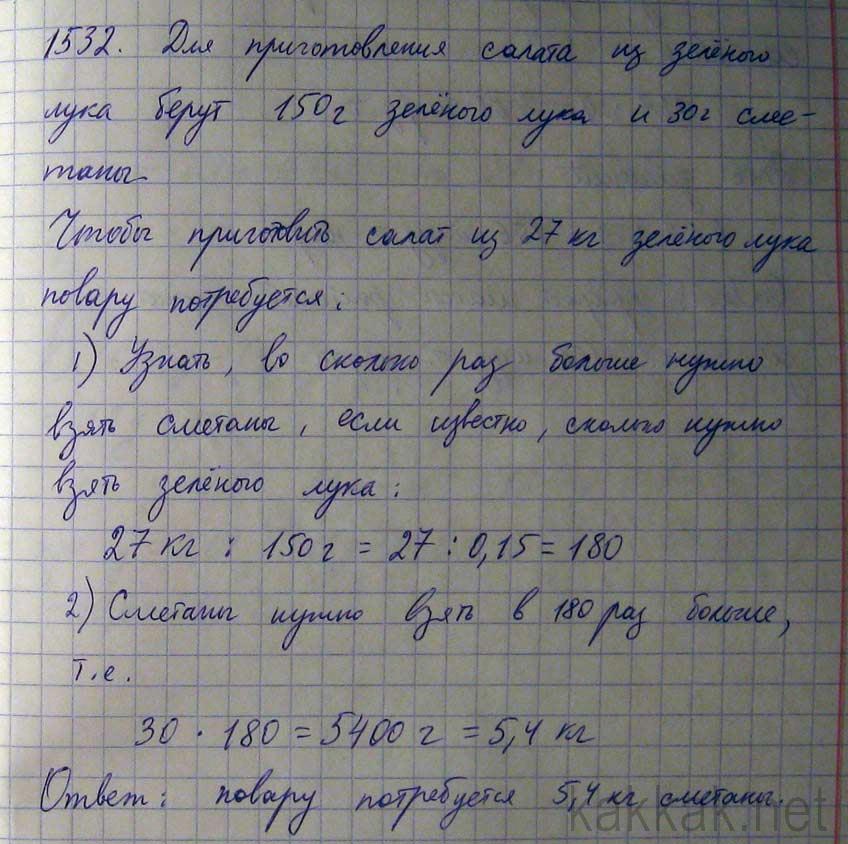 1532. Для приготовления салата из зелёного
лука берут 150г зелёного лука и 30г сме-
таны
Чтобы приготовить салат из 27 кг зелёного лука
повару потребуется:
1) Узнать, во сколько раз больше нужно
взять сметаны, если известно, сколько нужно
взять зелёного лука:
27 кг : 150 г = 27 : 0,15 = 180
2) Сметаны нужно взять в 180 раз больше,
т.е.
30 · 180 = 5400 г = 5,4 кг
Ответ: повару потребуется 5,4 кг сметаны.
kakkak.net